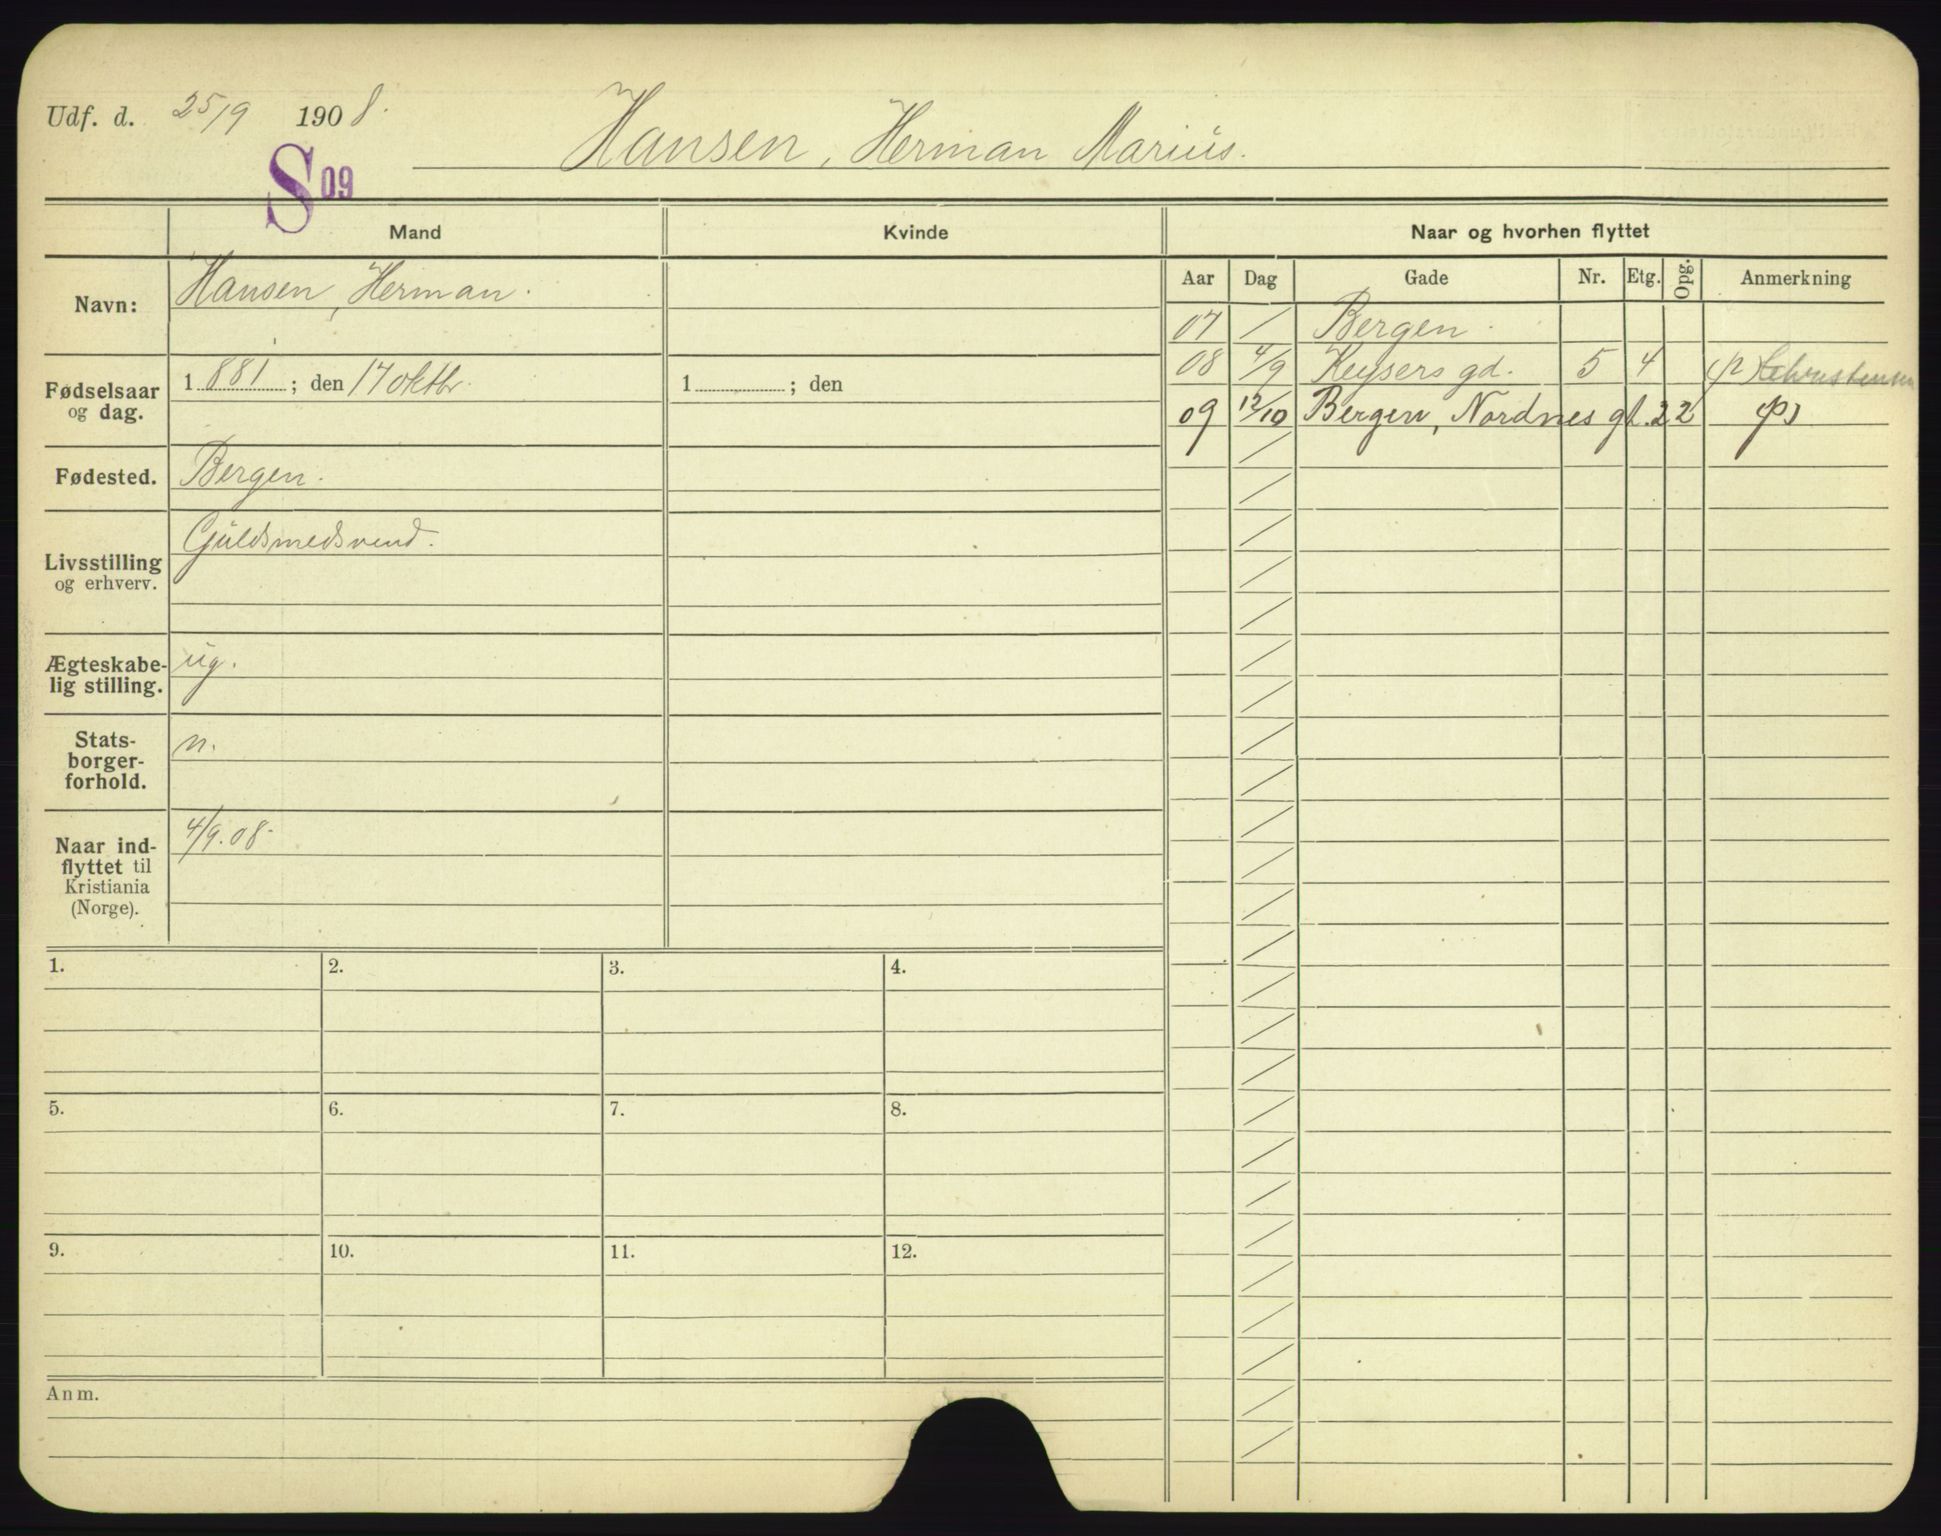 Udf. d. 25/9 1908.
Hansen, Herman Marius.
S 09
Mand Kvinde Naar og hvorhen flyttet
Aar Dag Gade Nr. Etg. Opg. Anmerkning
Navn: Hansen, Herman.
07 / Bergen.
08 4/9 Keysers gd. 5 4 Christensen
09 12/10 Bergen, Nordnes gt. 22
Fødselsaar og dag. 1881; den 17 oktbr. 1 ; den
Fødested. Bergen.
Livsstilling og erhverv. Guldsmedsvend.
Ægteskabe-
lig stilling. ug.
Stats-
borger-
forhold. n.
Naar ind-
flyttet til
Kristiania
(Norge). 4/9.08.
1. 2. 3. 4.
5. 6. 7. 8.
9. 10. 11. 12.
Anm.